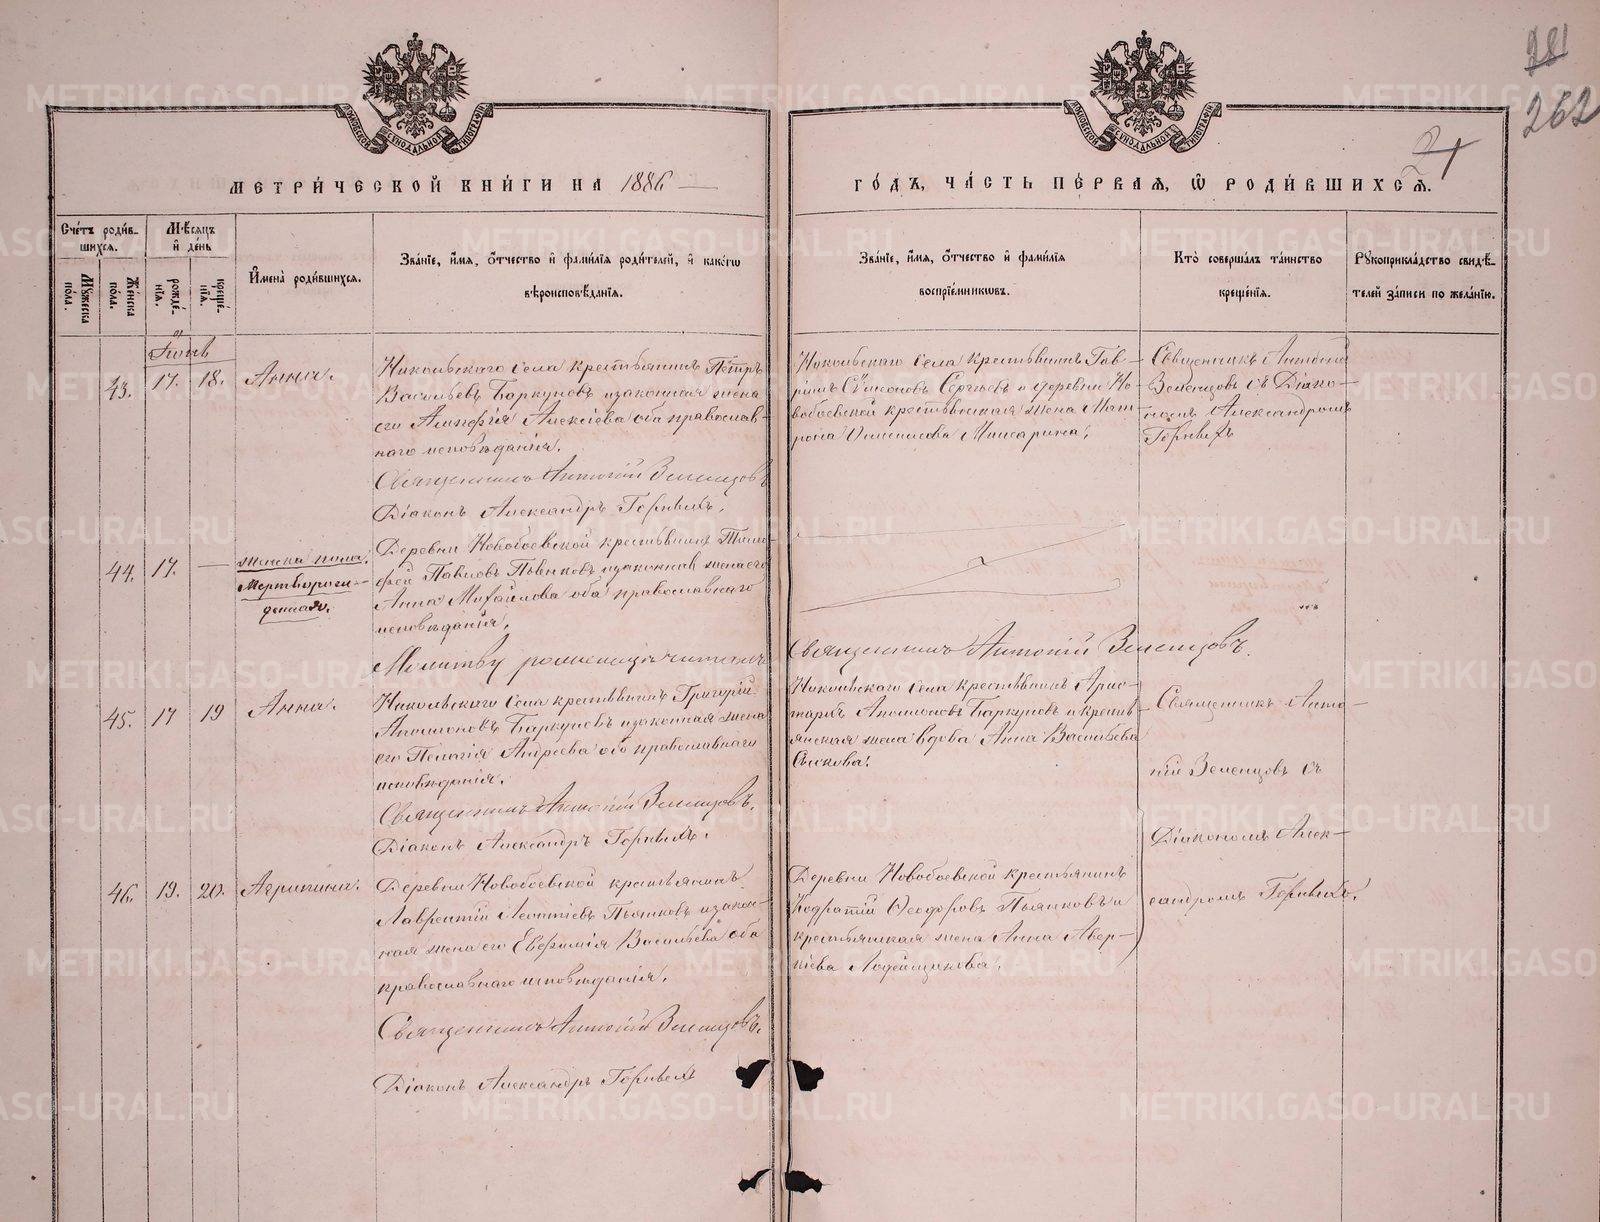 281
262
21
МЕТРИ́ЧЕСКОЙ КНИ́ГИ НА 1886
ГО́ДЪ, ЧА́СТЬ ПЕ́РВАЯ, Ѽ РОДИ́ВШИХСѦ.
Сче́тъ роди́в-
шихся.
Мѣ́сяцъ
и҆ де́нь
Мꙋжеска по́ла.
Же́нска по́ла.
рожде́-
нїя.
креще́-
нїя.
И҆мена̀ роди́вшихся.
Зва́нїе, и҆́мя, ѻ҆́тчество и҆ фами́лїя роди́телей, и҆ како́гѡ
вѣроисповѣ́данїя.
Зва́нїе, и҆́мя, ѻ҆́тчество и҆ фами́лїя
воспрїе́мникѡвъ.
Кто̀ соверша́лъ та́инство
креще́нїя.
Рꙋкоприкла́дство свидѣ́-
телей за́писи по жела́нїю.
Іюнь
43. 17. 18. Анна.
Никольскаго села крестьянинъ Петръ
Васильевъ Баркуновъ и законная жена
его Алексіева оба православ-
наго исповѣданія.
Священникъ Антоній Зеленцовъ
Діаконъ Александръ Горныхъ.
Никольскаго села крестьянинъ Гав-
Сергѣевъ и деревни Но-
вобоевской крестьянская жена Мат-
рона
Священникъ Антоній
Зеленцовъ съ Діако-
номъ Александромъ
Горныхъ
44. 17. —
женска пола.
Мертворож-
денная.
Деревни Новобоевской крестьянинъ Тимо-
фей Павловъ Пьянковъ и законная жена его
Анна Михайлова оба православнаго
исповѣданія.
Молитву родильницѣ читалъ
Священникъ Антоній Зеленцовъ.
45. 17 19 Анна.
Никольскаго села крестьянинъ Григорій
Аполлоновъ Баркуновъ и законная жена
его Пелагія Андреева оба православнаго
исповѣданія.
Священникъ Антоній Зеленцовъ.
Діаконъ Александръ Горныхъ.
Никольскаго села крестьянинъ Арис-
тархъ Аполлоновъ Баркуновъ и кресть-
янская жена вдова Анна Васильева
Священникъ Анто-
ній Зеленцовъ съ
Діакономъ Алек-
сандромъ Горныхъ.
46. 19. 20. Агрипина.
Деревни Новобоевской крестьянинъ
Лаврентій Леонтіевъ Пьянковъ и закон-
ная жена его Евфимія Васильева оба
православнаго исповѣданія.
Священникъ Антоній Зеленцовъ.
Діаконъ Александръ Горныхъ
Деревни Новобоевской крестьянинъ
Кодратій Ѳеодоровъ Пьянковъ и
крестьянская жена Анна Авер-
кіева Лодейщикова.
METRIKI.GASO-URAL.RU